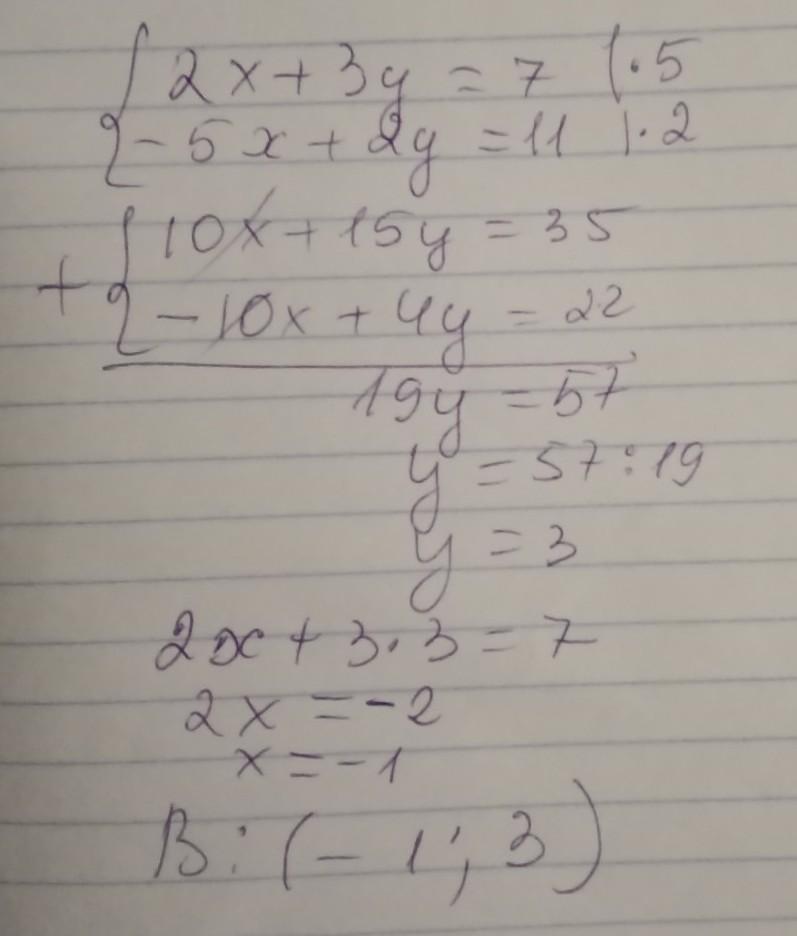 {2x+3y=7 |·5
{-5x+2y=11 |·2
+{10x+15y=35
{-10x+4y=22
19y=57
y=57:19
y=3
2x+3·3=7
2x=-2
x=-1
В:(-1;3)